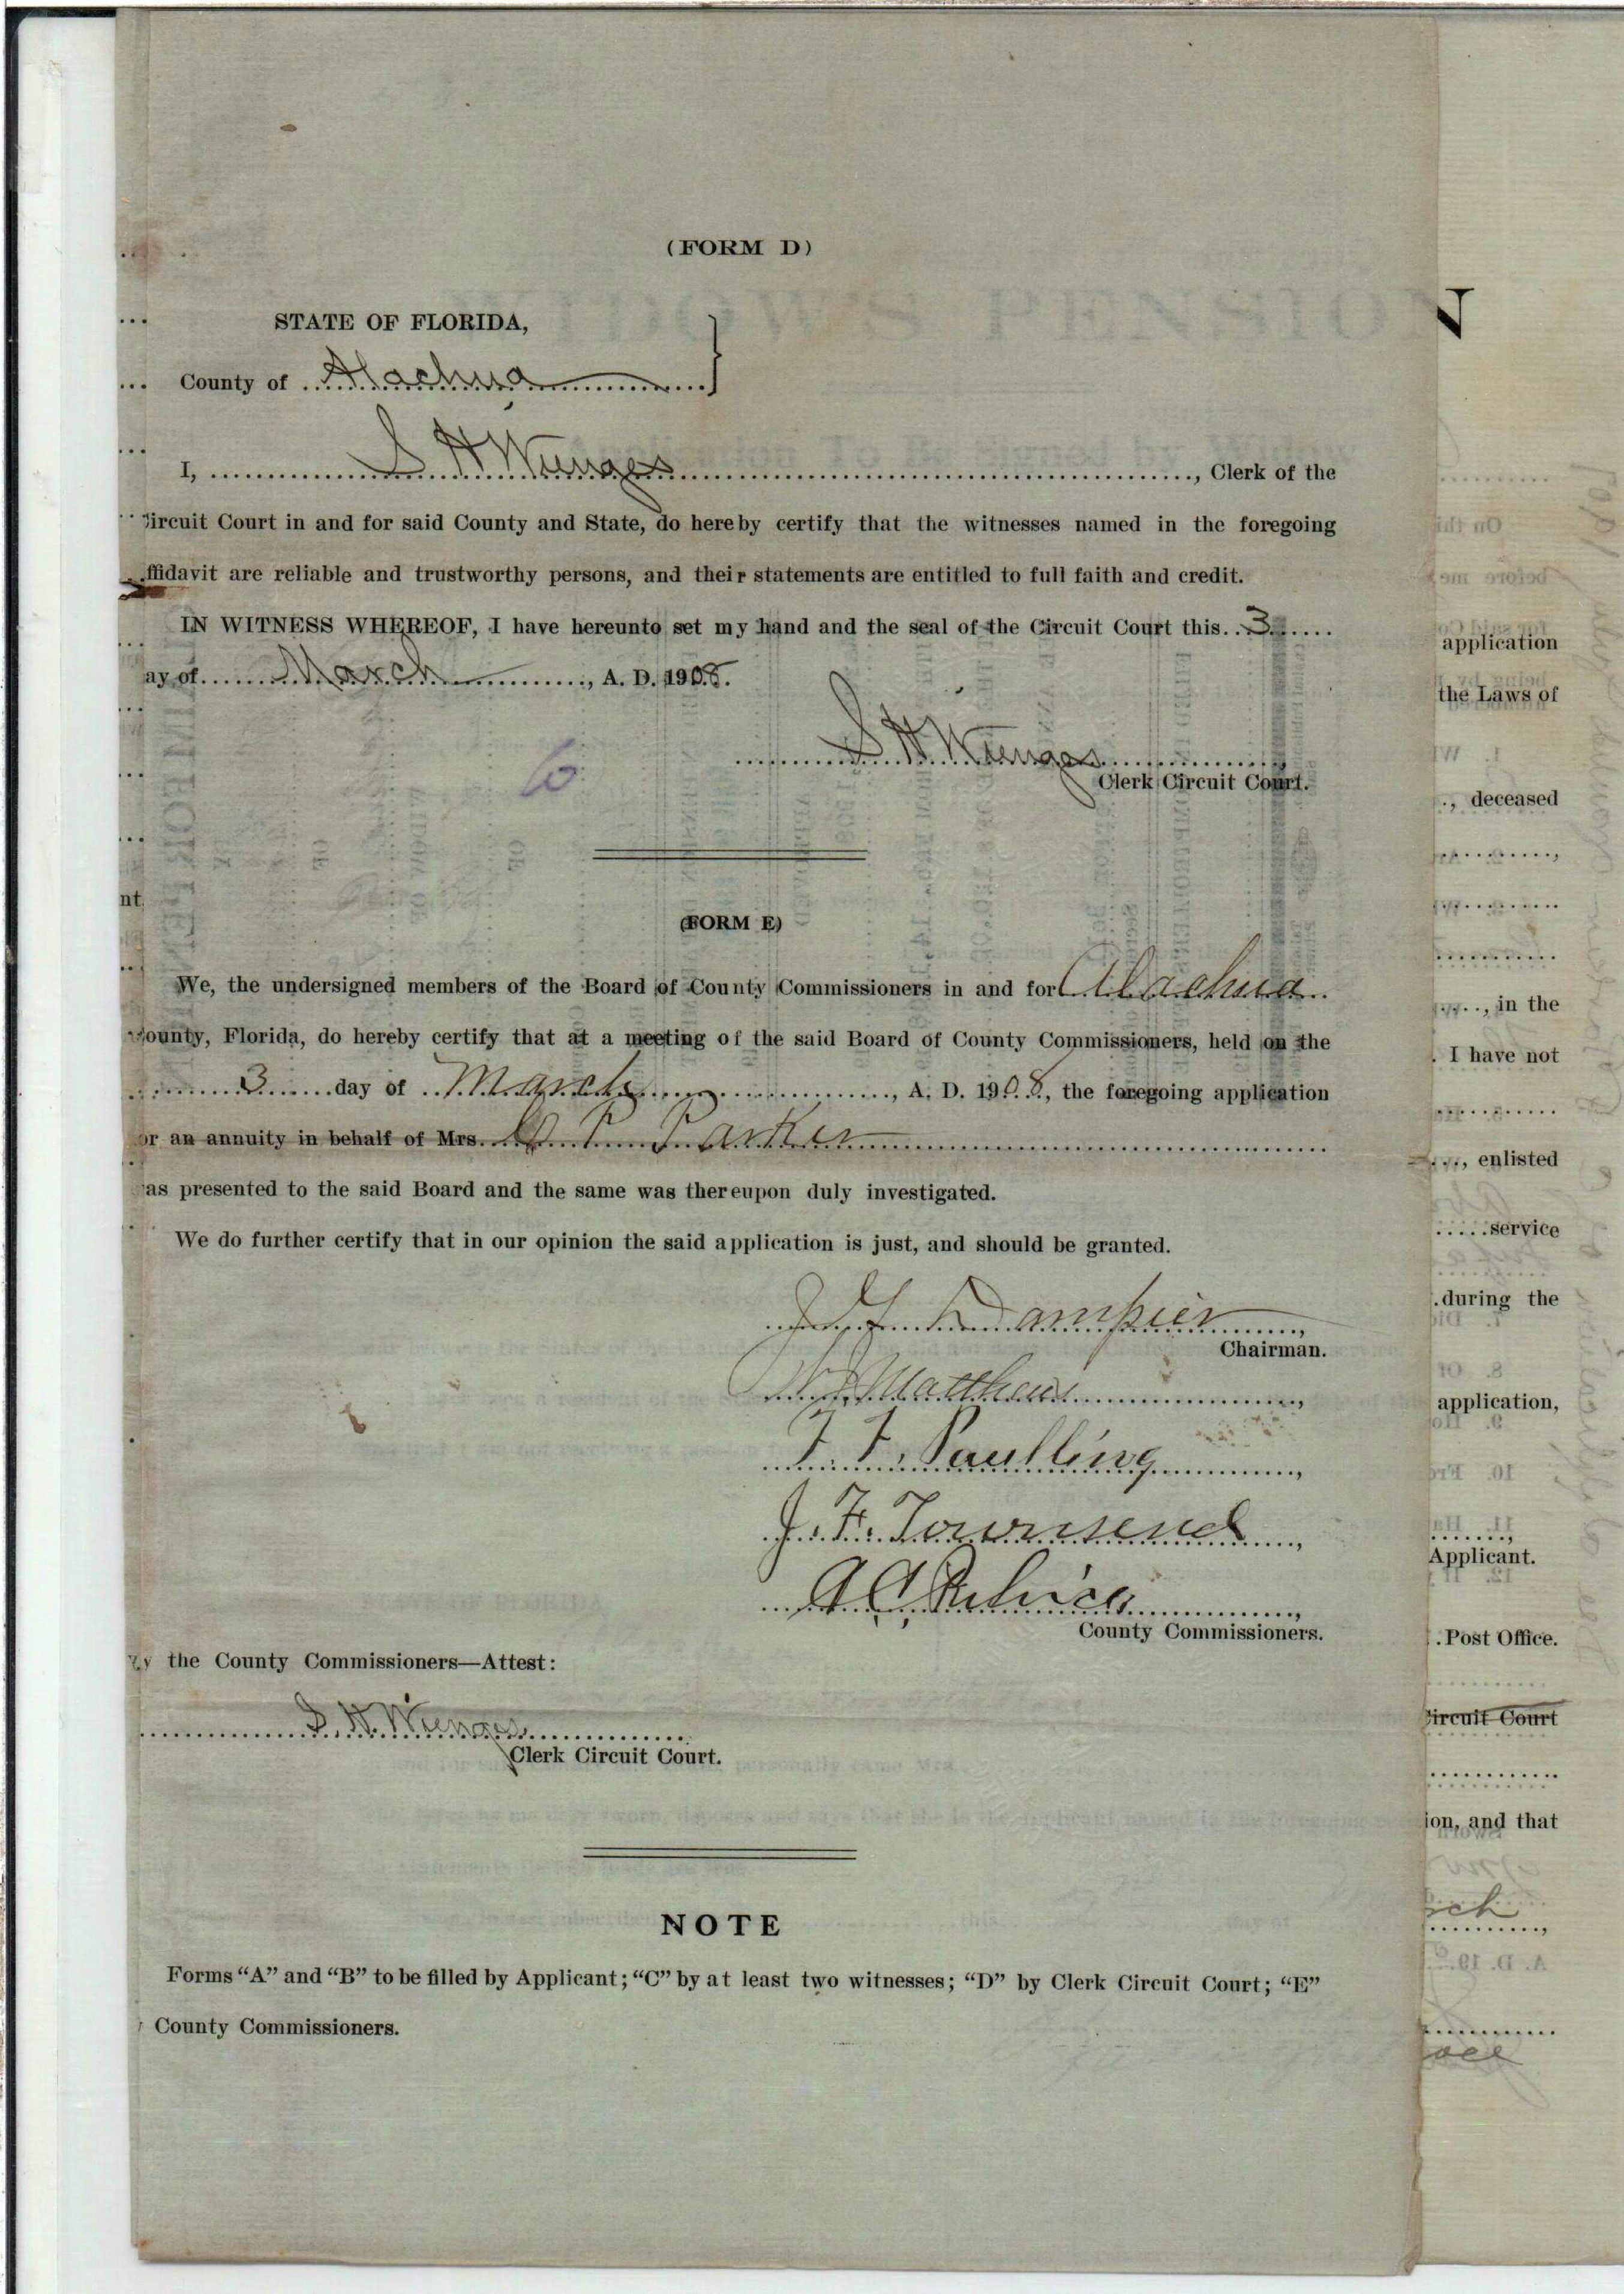 (FORM D)
STATE OF FLORIDA,
County of Alachua
I, S H Wienges, Clerk of the
ircuit Court in and for said County and State, do hereby certify that the witnesses named in the foregoing
ffidavit are reliable and trustworthy persons, and their statements are entitled to full faith and credit.
IN WITNESS WHEREOF, I have hereunto set my hand and the seal of the Circuit Court this 3
ay of March, A. D. 1908.
S H Wienges
Clerk Circuit Court.
nt
(FORM E)
We, the undersigned members of the Board of County Commissioners in and for Alachua
ounty, Florida, do hereby certify that at a meeting of the said Board of County Commissioners, held on the
3 day of March, A. D. 1908, the foregoing application
or an annuity in behalf of Mrs. Parker
as presented to the said Board and the same was thereupon duly investigated.
We do further certify that in our opinion the said application is just, and should be granted.
Dampier
Chairman.
Matthews
F. Paulling
J. F. Townsend
A C
County Commissioners.
y the County Commissioners—Attest:
S. H. Wienges
Clerk Circuit Court.
NOTE
Forms "A" and "B" to be filled by Applicant; "C" by at least two witnesses; "D" by Clerk Circuit Court; "E"
County Commissioners.
N
application
the Laws of
, deceased
, in the
. I have not
, enlisted
service
during the
application,
Applicant.
Post Office.
ircuit Court
ion, and that